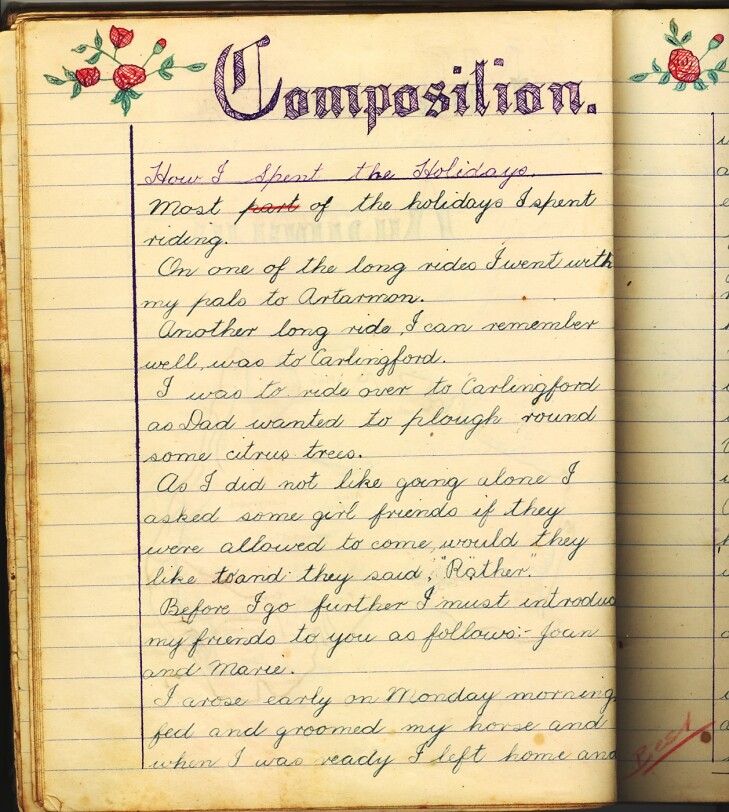 Composition.
How I spent the Holidays.
Most part of the holidays I spent
riding.
On one of the long rides I went with
my pals to Artarmon.
Another long ride, I can remember
well, was to Carlingford.
I was to ride over to Carlingford
as Dad wanted to plough round
some citrus trees.
As I did not like going alone I
asked some girl friends if they
were allowed to come, would they
like to and they said, "Rather."
Before I go further I must introduc
my friends to you as follows:- Joan
and Marie.
I arose early on Monday morning
fed and groomed my horse and
when I was ready I left home and